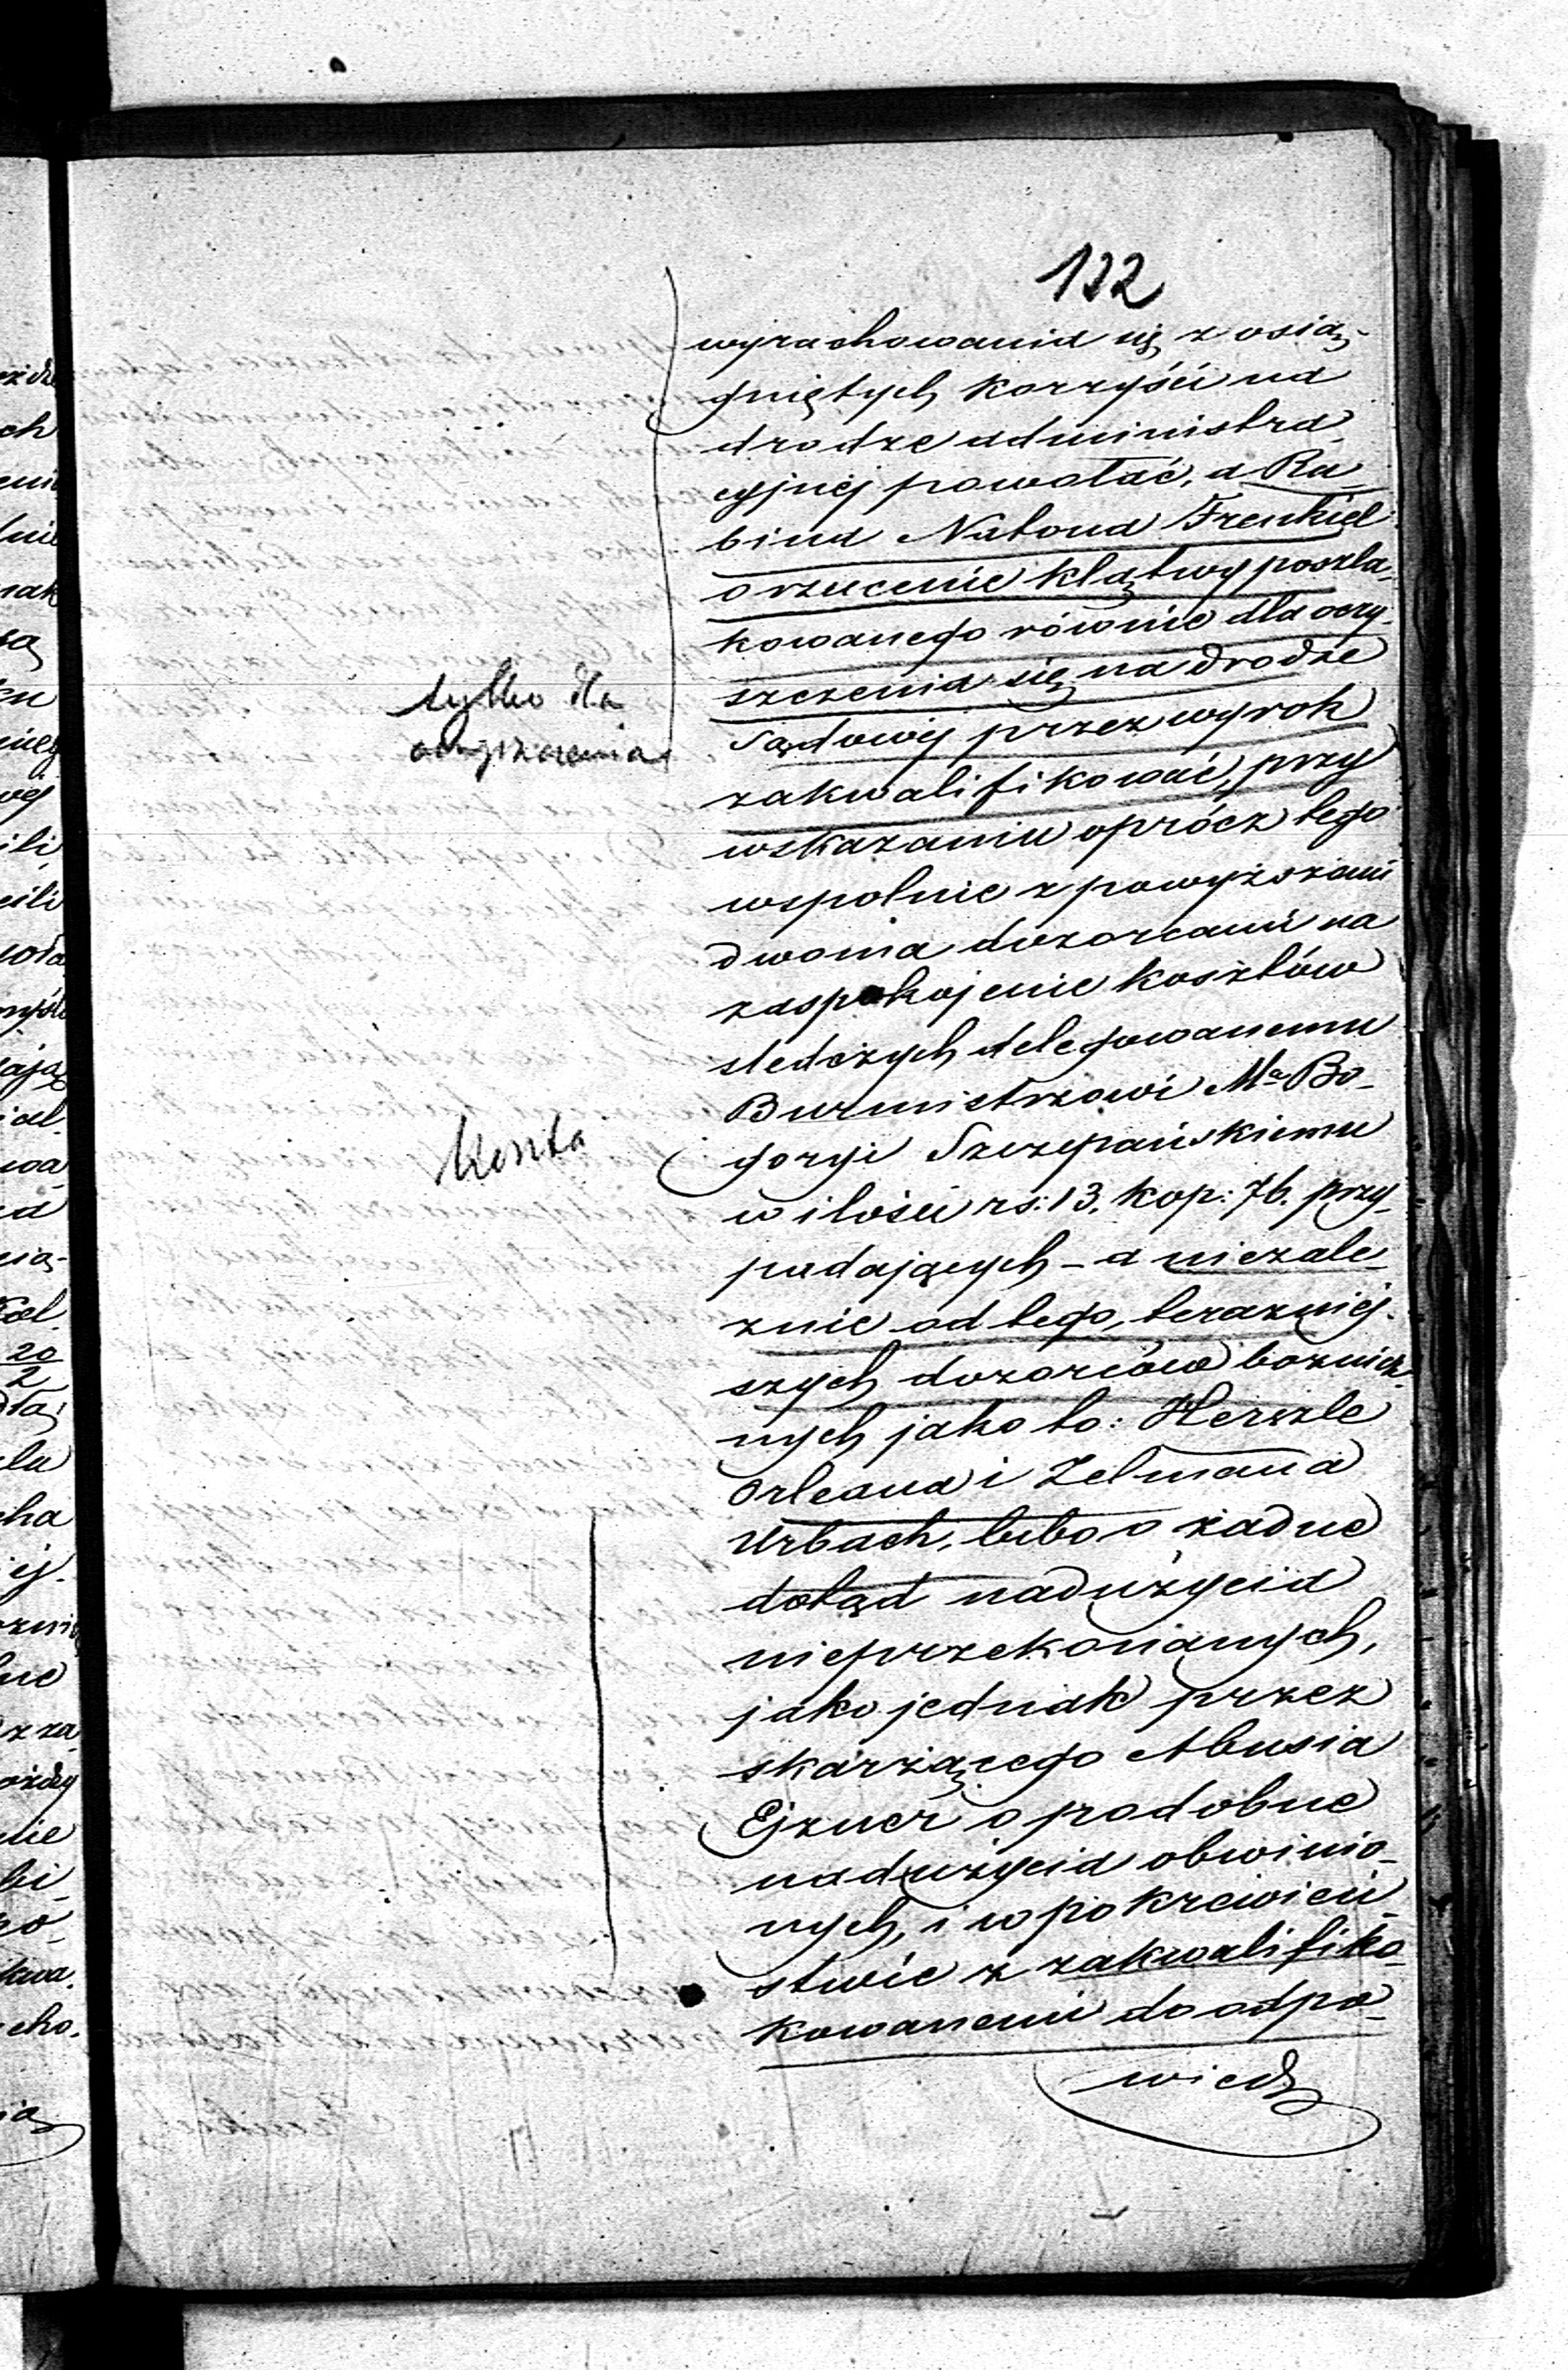 132
wyrachowania się z osią-
gniętych korzyści na
drodze administra-
cyjnéj powołać, a Ra-
bina Natona Frenkiel
o rzucenie klątwy poszla-
kowanego równie dla oczy-
szczenia się na drodze
Sądowéj przez wyrok
zakwalifikować, przy
wskazaniu oprócz tego
wspolnie z powyższemi
dwoma dozorcami na
zaspokojenie kosztów
sledczych delegowanemu
Burmistrzowi Mta Bo-
goryi Szczepańskiemu
w ilości rs: 13. kop: 76. przy-
padających - a niezale-
żnie od tego, teraźniej-
szych dozorców bożnicz-
nych jako to: Herszle
Orleana i Zelmana
Urbach, lubo o żadne
dotąd nadużycia
nieprzekonanych,
jako jednak przez
skarżącego Abusia
Ejzner o podobne
nadużycia obwinio-
nych, i w pokrewień-
stwie z zakwalifiko-
kowanemi do odpo-
wiedz
tylko dla
oczyszczenia
Koszta